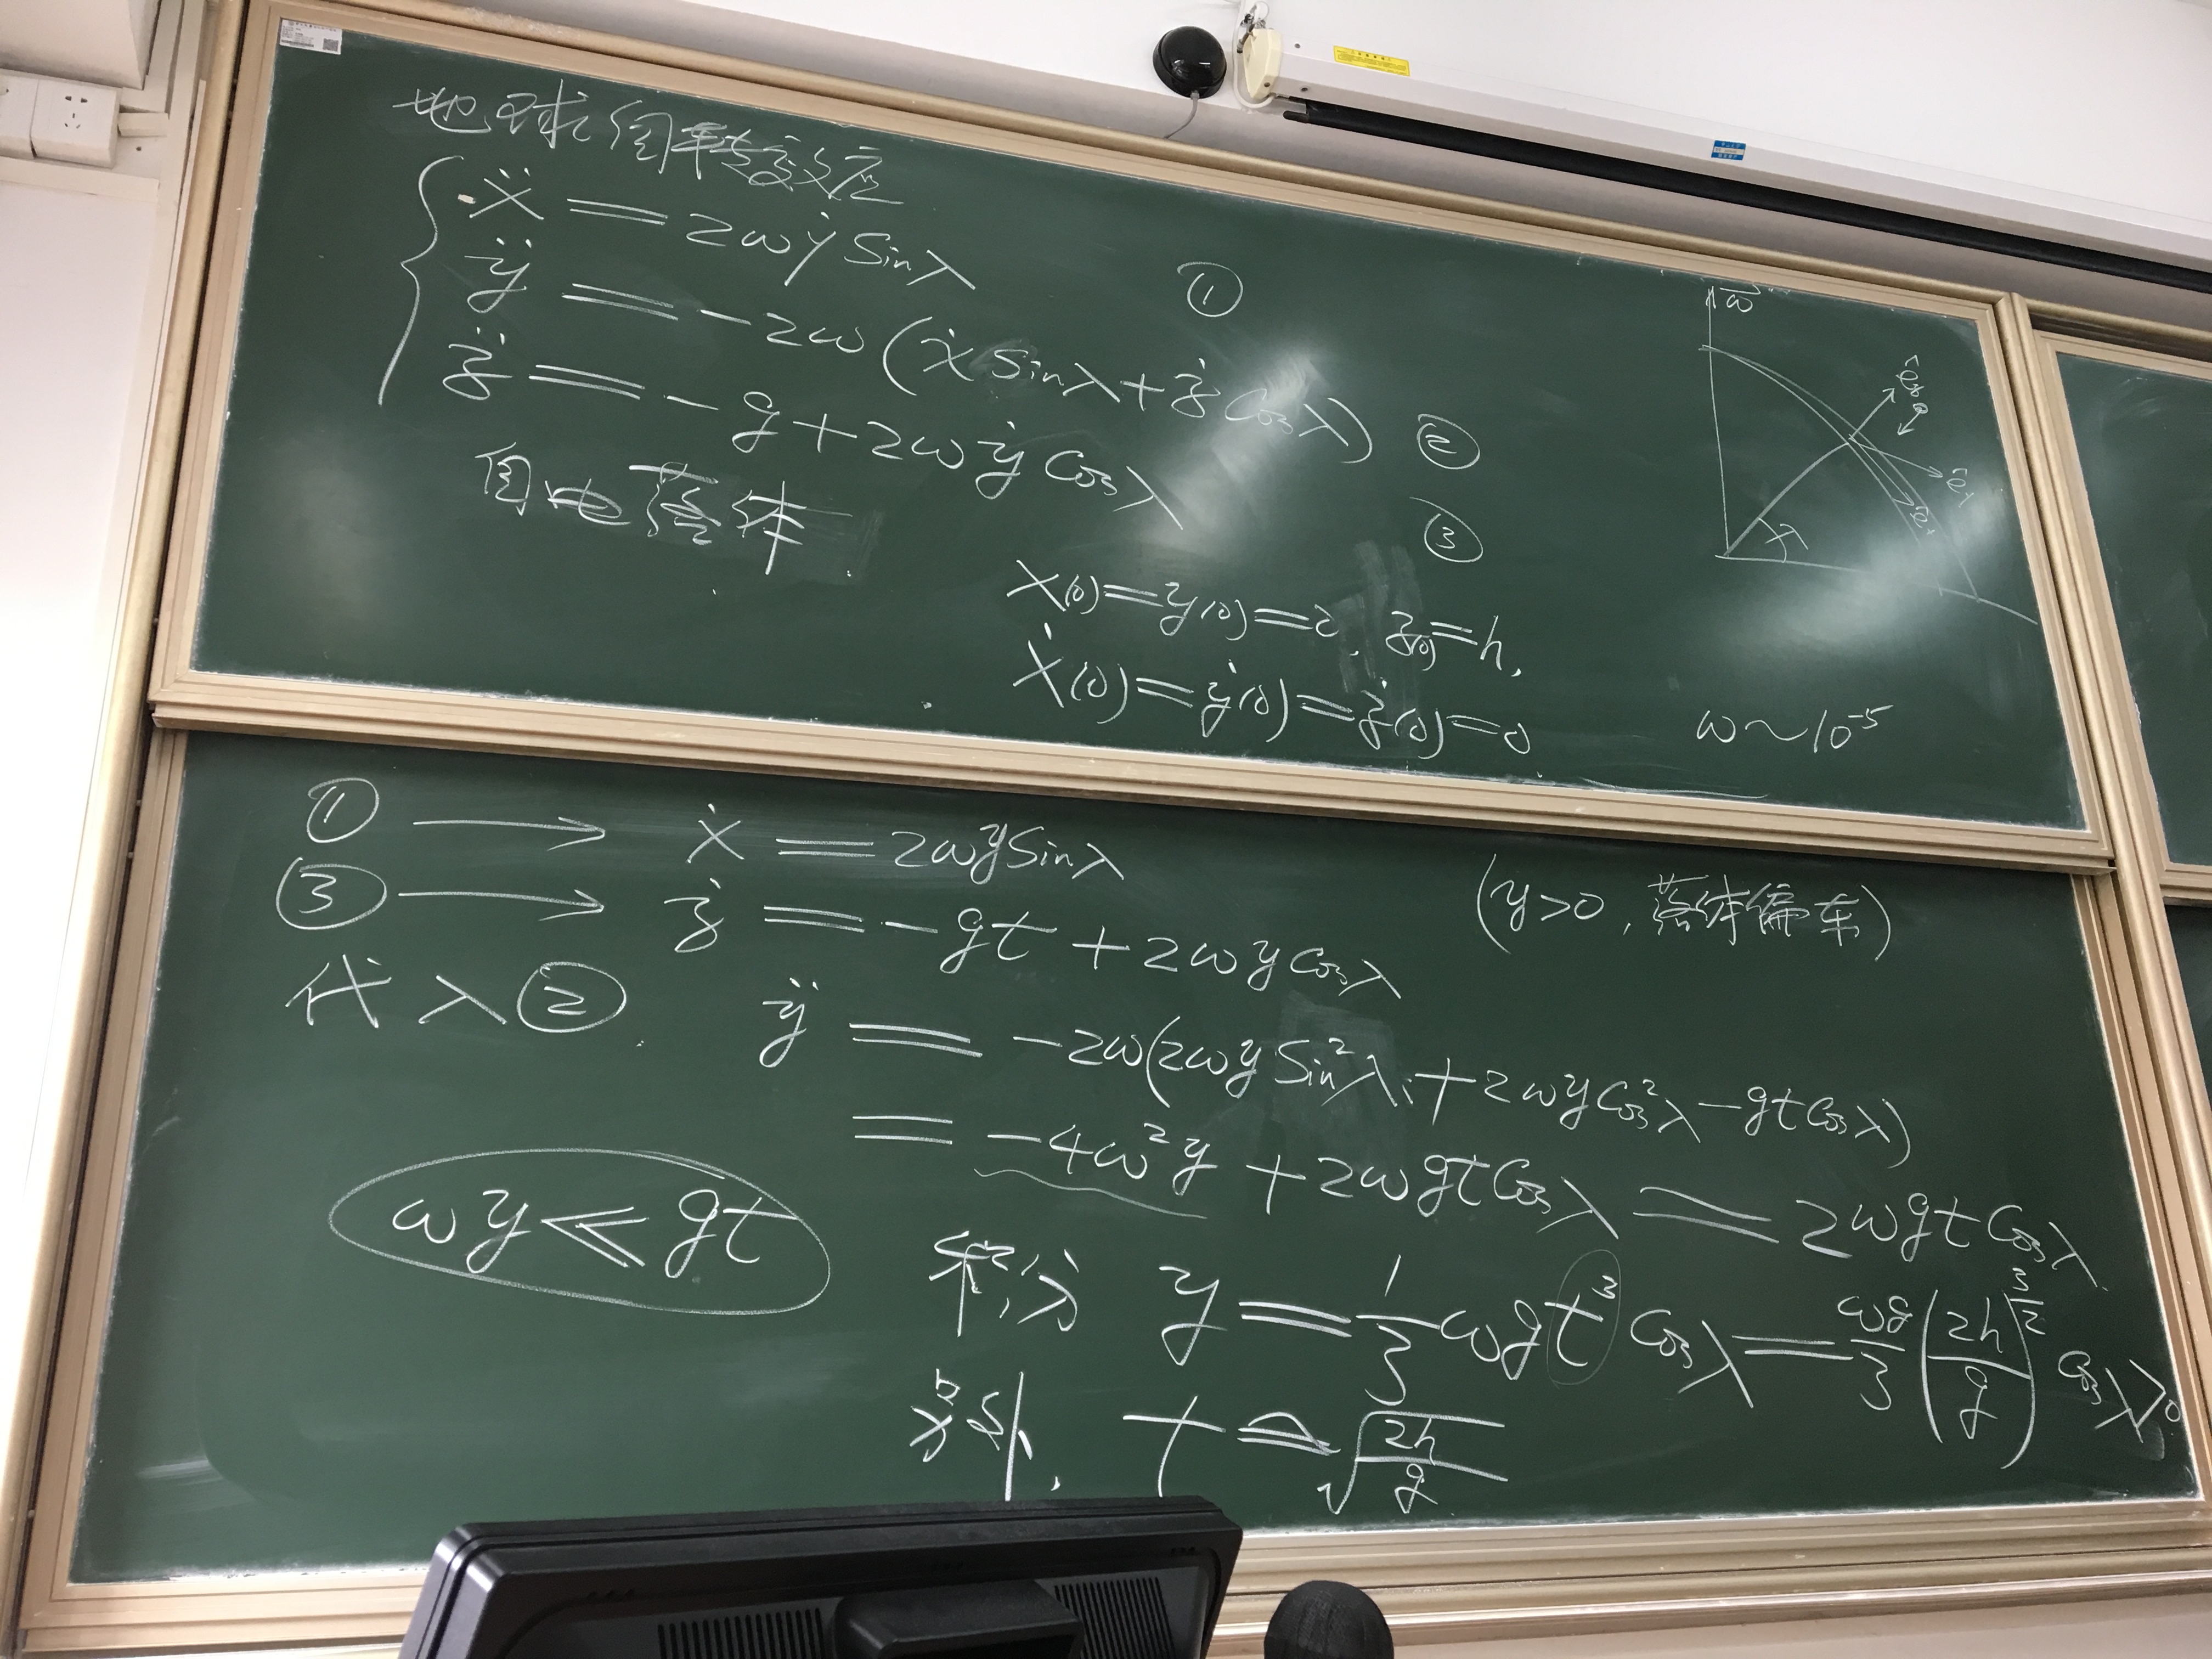 地球自转效应
ẍ = 2ωẏ sinλ ①
ÿ = -2ω(ẋ sinλ + ż cosλ) ②
z̈ = -g + 2ωẏ cosλ ③
自由落体
x(0) = y(0) = 0, z(0) = h,
ẋ(0) = ẏ(0) = ż(0) = 0
ω ~ 10⁻⁵
ω⃗
λ
① → ẋ = 2ωy sinλ
③ → ż = -gt + 2ωy cosλ
(y>0, 落体偏东)
代入②
ÿ = -2ω(2ωy sin²λ + 2ωy cos²λ - gt cosλ)
= -4ω²y + 2ωgt cosλ = 2ωgt cosλ
ωy ≪ gt
积分 y = 1/3 ωgt³ cosλ = ωg/3 (2h/g)^(3/2) cosλ > 0
另外, t ≙ √(2h/g)